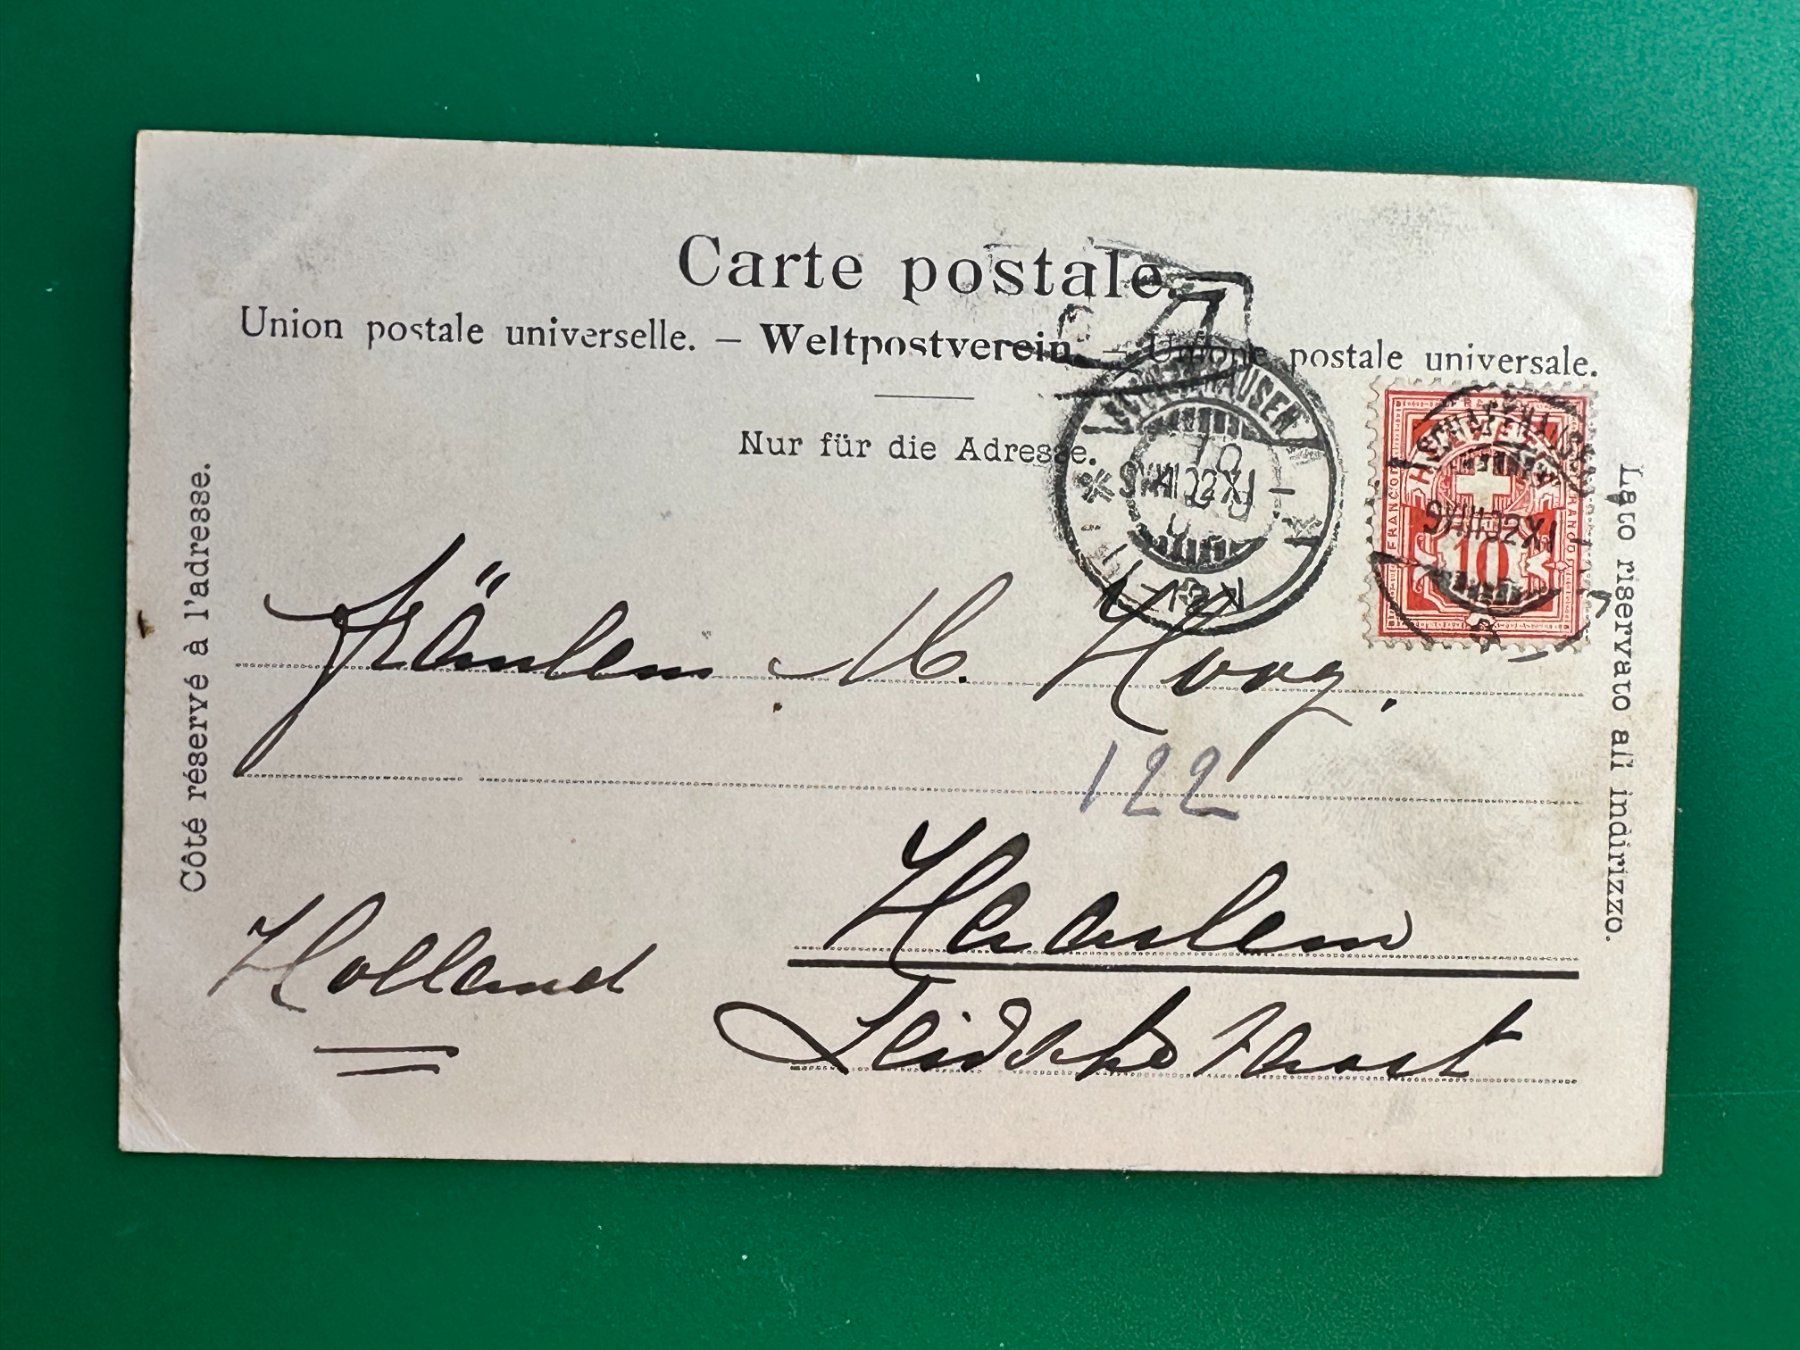 Carte postale.
Union postale universelle. – Weltpostverein. – Unione postale universale.
Nur für die Adresse.
Côté réservé à l'adresse.
Lato riservato all indirizzo.
SCHAFFHAUSEN
9.VIII.02.XI–
FRANCO
FRANCO
10
SCHAFFHAUSEN
9.VIII.02.XI–
Fräulein M. Hoog.
122
Haarlem
Holland
Leidsche